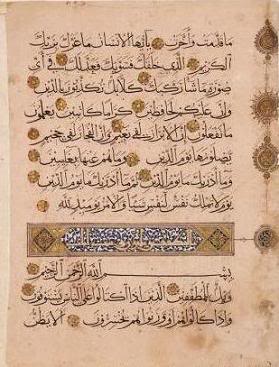 ما قدمت وأخرت يأيها الإنسان ما غرك بربك
الكريم الذي خلقك فسويك فعدلك في أي
صورة ما شاء ركبك كلا بل تكذبون بالدين
وإن عليكم لحافظين كراما كاتبين يعلمون
ما تفعلون إن الأبرار لفي نعيم وإن الفجار لفي جحيم
يصلونها يوم الدين وما هم عنها بغائبين
وما أدريك ما يوم الدين ثم ما أدريك ما يوم الدين
يوم لا تملك نفس لنفس شيئا والأمر يومئذ لله
بسم الله الرحمن الرحيم
ويل للمطففين الذين إذا اكتالوا على الناس يستوفون
وإذا كالوهم أو وزنوهم يخسرون ألا يظن